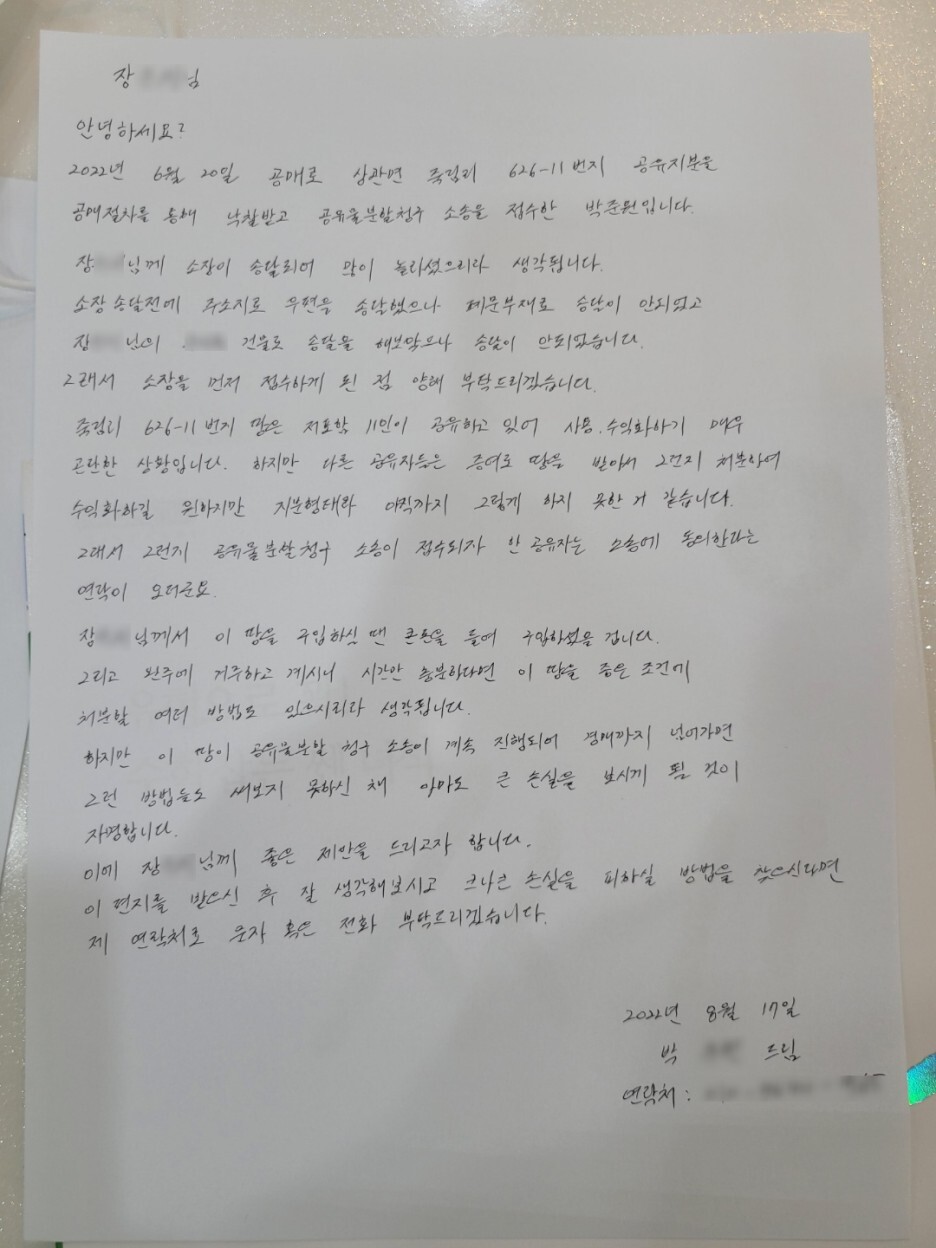 장 님
안녕하세요?
2022년 6월 20일 공매로 상관면 죽림리 626-11번지 공유지분을
공매절차를 통해 낙찰받고 공유물분할청구 소송을 접수한 박준원입니다.
장 님께 소장이 송달되어 많이 놀라셨으리라 생각됩니다.
소장 송달전에 주소지로 우편을 송달했으나 폐문부재로 송달이 안되었고
장 님의 건물로 송달을 해보았으나 송달이 안되었습니다.
그래서 소장을 먼저 접수하게 된 점 양해 부탁드리겠습니다.
죽림리 626-11번지 땅은 저포함 11인이 공유하고 있어 사용.수익화하기 매우
곤란한 상황입니다. 하지만 다른 공유자들은 증여로 땅을 받아서 그런지 처분하여
수익화하길 원하지만 지분형태라 아직까지 그렇게 하지 못한 거 같습니다.
그래서 그런지 공유물분할청구 소송이 접수되자 한 공유자는 소송에 동의한다는
연락이 오더군요.
장 님께서 이 땅을 구입하신 땐 큰돈을 들여 구입하셨을 겁니다.
그리고 완주에 거주하고 계시니 시간만 충분하다면 이 땅을 좋은 조건에
처분할 여러 방법도 있으시리라 생각됩니다.
하지만 이 땅이 공유물분할 청구 소송이 계속 진행되어 경매까지 넘어가면
그런 방법들도 써보지 못하신 채 아마도 큰 손실을 보시게 될 것이
자명합니다.
이에 장 님께 좋은 제안을 드리고자 합니다.
이 편지를 받으신 후 잘 생각해보시고 크나큰 손실을 피하실 방법을 찾으신다면
제 연락처로 문자 혹은 전화 부탁드리겠습니다.
2022년 8월 17일
박 드림
연락처 :